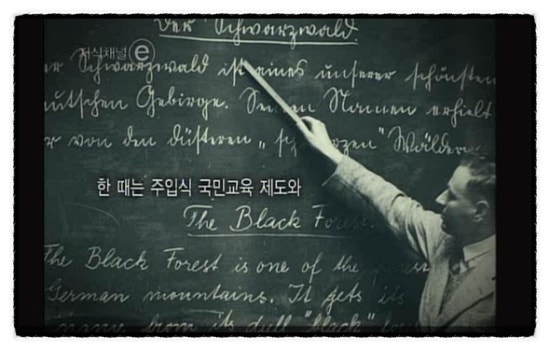 Der Schwarzwald.
지식채널 e
Schwarzwald ist eines unserer schönsten
utschen Gebirge. Seinen Namen erhielt
r von den düsteren „sch rzen" Wäldern
한 때는 주입식 국민교육 제도와
The Black Fores
The Black Forest is one of the
German mountains. It gets its
name from its dull "black"